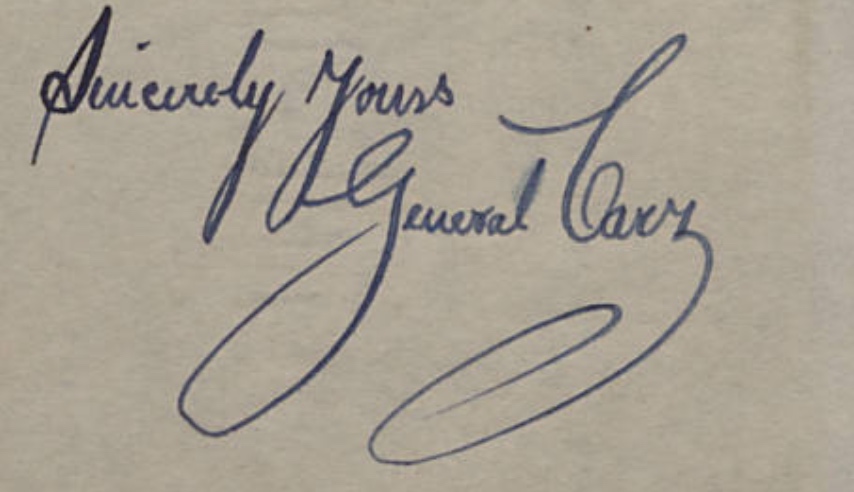 Sincerely Yours
General Carr